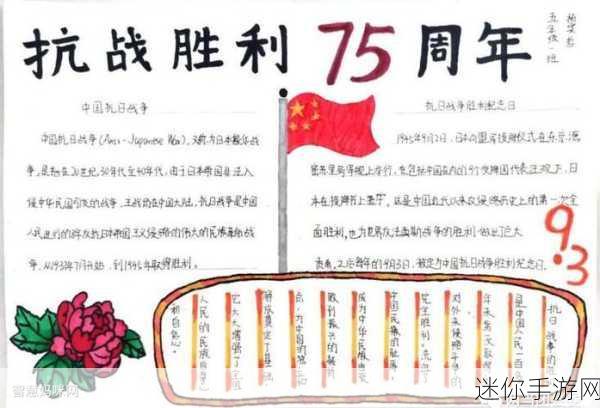 抗战胜利75周年
五年级一班
中国抗日战争
中国抗日战争(Anti-Japanese War),又称为日本侵华战
争。是指在20世纪30年代至40年代,由于日本帝国主义入
侵中华民国引发的战争,主战场在中国大陆,抗日战争是中国
人民进行的8年反抗日本帝国主义侵略的伟大的民族革命战
争,从1937年7月开始,到1945年取得胜利。
抗日战争胜利纪念日
1945年9月2日,日本向盟军投降仪式在东京湾
密苏里号军舰上举行,在包括中国在内的9个受降国代表注视下,日
本在投降书上签字,这是中国近代以来反侵略历史上的第一次全
面胜利,也为世界反法西斯战争的胜利做出巨大
贡献,之后每年的9月3日,被定为中国抗日战争胜利纪念日。
9.3
抗日战争的胜
是中国人民一百多
年来第一次取得
对外来侵略斗争的
完全胜利,洗
中国民族的耻辱
成为中华民族由衰
败到振兴的转折
点,为中国的独立
解放奠定了基础
它大大增强了全国
人民的民族自尊
和自信心。
智慧妈咪网
迷你手游网